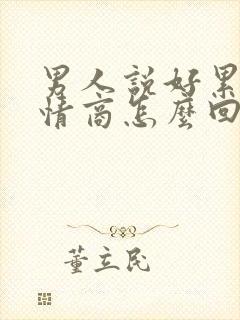 男人說好累
情商怎麼回
董立民